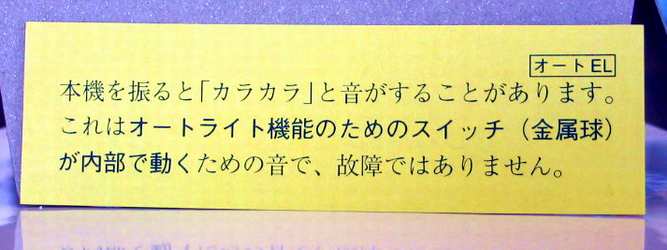 オートEL
本機を振ると「カラカラ」と音がすることがあります。
これはオートライト機能のためのスイッチ（金属球）
が内部で動くための音で、故障ではありません。